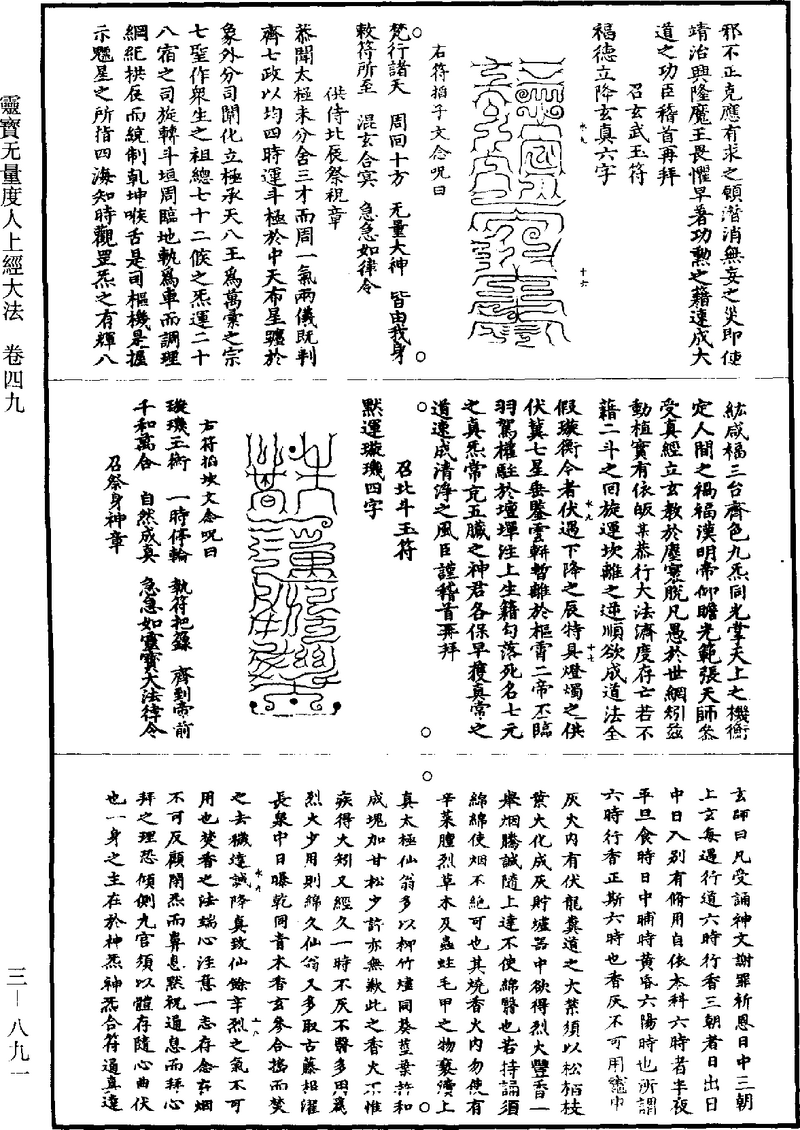 邪不正克應有求之願潛消無妄之災即使
靖治興隆魔王畏懼早著功勳之籍速成大
道之功臣稽首再拜
召玄武玉符
福德立降玄真六字
右符掐子文念呪曰
梵行諸天　周回十方　无量大神　皆由我身
敕符所至　混玄合冥　急急如律令
供侍北辰祭祝章
恭聞太極未分舍三才而周一氣兩儀既判
齊七政以均四時運斗極於中天布星躔於
象外分司闡化立極承天八王爲萬彙之宗
七聖作衆生之祖總七十二候之炁運二十
八宿之司旋轉斗垣周臨地軌爲車而調理
綱紀拱辰而統制乾坤喉舌是司樞機是握
示魁星之所指四海知時觀罡炁之有輝八
紘咸福三台齊色九炁同光掌天上之機衡
定人間之禍福漢明帝仰瞻光範張天師參
受真經立玄教於塵寰脫凡愚於世網矧茲
動植實有依皈某恭行大法濟度存亡若不
藉二斗之回旋運坎離之逆順欲成道法全
假璇衡今者伏遇下降之辰特具燈燭之供
伏冀七星垂鑒雲軿暫離於樞霄二帝丕臨
羽駕權駐於壇墠注上生籍勾落死名七元
之真炁常充五臟之神君各保早獲真常之
道速成清淨之風臣謹稽首再拜
召北斗玉符
默運璇璣四字
右符掐坎文念呪曰
璇璣玉衡　一時停輪　執符把籙　齊到帝前
千和萬合　自然成真　急急如靈寶大法律令
召祭身神章
玄師曰凡受誦神文謝罪祈恩日中三朝
上玄每遇行道六時行香三朝者日出日
中日入別有脩用自依本科六時者半夜
平旦食時日中晡時黃昏六陽時也所謂
六時行香正斯六時也香灰不可用竈中
灰火內有伏龍糞道之大禁須以松栢枝
葉火化成灰貯壚器中欲得烈火豐香一
舉烟騰誠隨上達不使綿翳也若持誦須
綿綿使烟不絕可也其燒香火內勿使有
辛菜膻烈草木及蟲蛀毛甲之物褻瀆上
真太極仙翁多以柳竹爐同葵莖葉許和
成塊加甘松少許亦無歉此之香火不惟
疾得大矧又經久一時不灰不翳多用爲
烈火少用則綿久仙翁又多取古藤根濯
長泉中日曝乾同青木香玄參合搗而焚
之去穢達誠降真致仙餘辛烈之氣不可
用也焚香之法端心注意一志存念玄烟
不可反顧閉炁而鼻息默祝通息而拜心
拜之理恐傾側九宮須以體存隨心曲伏
也一身之主在於神炁神炁合符通真達
靈寶无量度人上經大法　卷四九
三—八九一
水九
十六
水九
十七
水九
十八